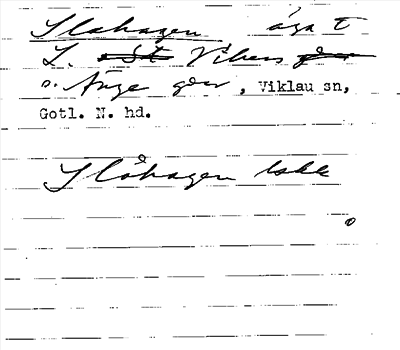 Slahagen äga t
L. St Vikers gård
o. Änge går, Viklau sn,
Gotl. N. hd.
Slåhagen